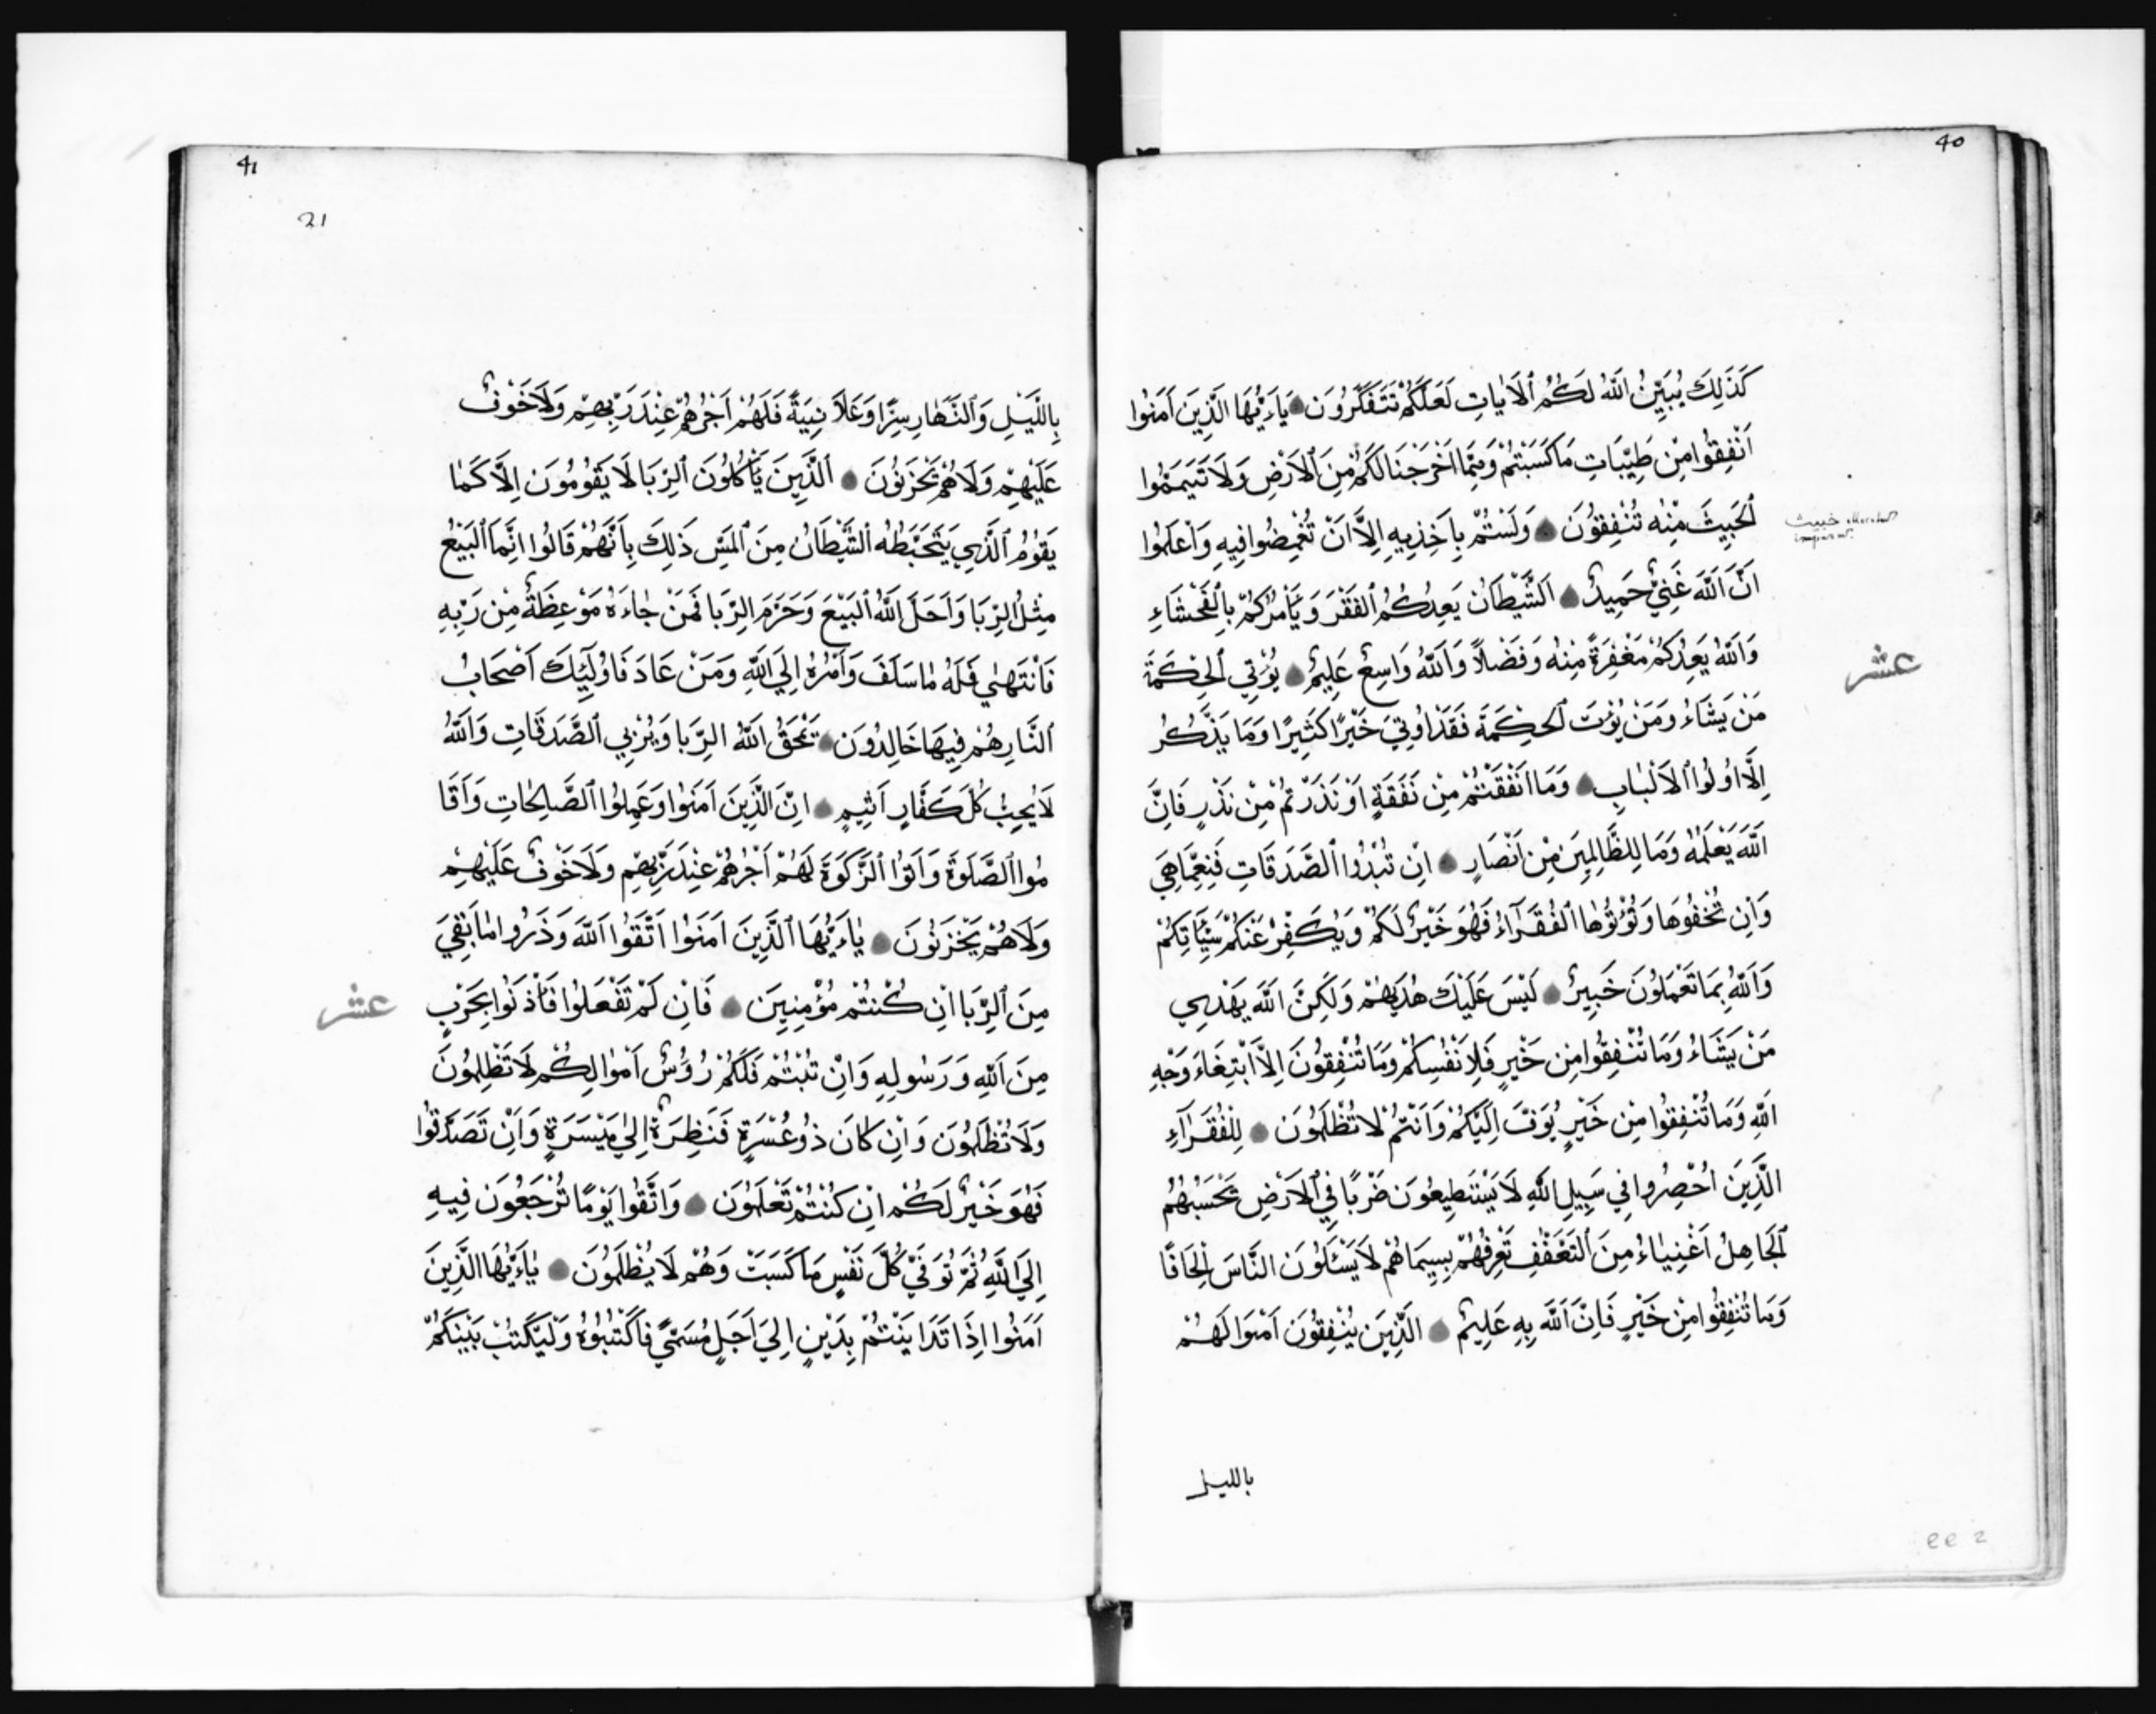 40
كَذَلِكَ يُبَيِّنُ اللَّهُ لَكُمُ ٱلْاٰيَاتِ لَعَلَّكُمْ تَتَفَكَّرُونَ يَاءَيُّهَا الَّذِينَ اَمَنُوا
اَنْفِقُوا مِنْ طَيِّبَاتِ مَا كَسَبْتُمْ وَمِمَّا اَخْرَجْنَا لَكُمْ مِنَ ٱلْاَرْضِ وَلَا تَيَمَّمُوا
ٱلْخَبِيثَ مِنْهُ تُنْفِقُونَ وَلَسْتُمْ بِاَخِذِيهِ اِلَّا اَنْ تُغْمِضُوا فِيهِ وَاعْلَمُوا
خبيث
اَنَّ اللَّهَ غَنِيٌّ حَمِيدٌ اَلشَّيْطَانُ يَعِدُكُمُ ٱلْفَقْرَ وَيَأْمُرُكُمْ بِٱلْفَحْشَاءِ
وَاللَّهُ يَعِدُكُمْ مَغْفِرَةً مِنْهُ وَفَضْلًا وَاللَّهُ وَاسِعٌ عَلِيمٌ يُؤْتِي ٱلْحِكْمَةَ
عشر
مَنْ يَشَاءُ وَمَنْ يُؤْتَ ٱلْحِكْمَةَ فَقَدْ اُوتِيَ خَيْرًا كَثِيرًا وَمَا يَذَّكَّرُ
اِلَّا اُولُوا ٱلْاَلْبَابِ وَمَا اَنْفَقْتُمْ مِنْ نَفَقَةٍ اَوْ نَذَرْتُمْ مِنْ نَذْرٍ فَاِنَّ
اللَّهَ يَعْلَمُهُ وَمَا لِلظَّالِمِينَ مِنْ اَنْصَارٍ اِنْ تُبْدُوا ٱلصَّدَقَاتِ فَنِعِمَّا هِيَ
وَاِنْ تُخْفُوهَا وَتُؤْتُوهَا ٱلْفُقَرَآءَ فَهُوَ خَيْرٌ لَكُمْ وَيُكَفِّرْ عَنْكُمْ سَيِّئَاتِكُمْ
وَاللَّهُ بِمَا تَعْمَلُونَ خَبِيرٌ لَيْسَ عَلَيْكَ هُدَيهُمْ وَلَكِنَّ اللَّهَ يَهْدِي
مَنْ يَشَاءُ وَمَا تُنْفِقُوا مِنْ خَيْرٍ فَلِاَنْفُسِكُمْ وَمَا تُنْفِقُونَ اِلَّا ابْتِغَاءَ وَجْهِ
اللَّهِ وَمَا تُنْفِقُوا مِنْ خَيْرٍ يُوَفَّ اِلَيْكُمْ وَاَنْتُمْ لَا تُظْلَمُونَ لِلْفُقَرَآءِ
الَّذِينَ اُحْصِرُوا فِي سَبِيلِ اللَّهِ لَا يَسْتَطِيعُونَ ضَرْبًا فِي ٱلْاَرْضِ يَحْسَبُهُمُ
ٱلْجَاهِلُ اَغْنِيَاءَ مِنَ ٱلتَّعَفُّفِ تَعْرِفُهُمْ بِسِيمَاهُمْ لَا يَسْئَلُونَ النَّاسَ اِلْحَافًا
وَمَا تُنْفِقُوا مِنْ خَيْرٍ فَاِنَّ اللَّهَ بِهِ عَلِيمٌ الَّذِينَ يُنْفِقُونَ اَمْوَالَهُمْ
بالليل
41
21
بِاللَّيْلِ وَالنَّهَارِ سِرًّا وَعَلَانِيَةً فَلَهُمْ اَجْرُهُمْ عِنْدَ رَبِّهِمْ وَلَا خَوْفٌ
عَلَيْهِمْ وَلَا هُمْ يَحْزَنُونَ اَلَّذِينَ يَأْكُلُونَ ٱلرِّبَا لَا يَقُومُونَ اِلَّا كَمَا
يَقُومُ ٱلَّذِي يَتَخَبَّطُهُ ٱلشَّيْطَانُ مِنَ ٱلْمَسِّ ذَلِكَ بِاَنَّهُمْ قَالُوا اِنَّمَا ٱلْبَيْعُ
مِثْلُ الرِّبَا وَاَحَلَّ اللَّهُ ٱلْبَيْعَ وَحَرَّمَ الرِّبَا فَمَنْ جَاءَهُ مَوْعِظَةٌ مِنْ رَبِّهِ
فَانْتَهٰي فَلَهُ مَا سَلَفَ وَاَمْرُهُ اِلَي اللَّهِ وَمَنْ عَادَ فَاُولَٓئِكَ اَصْحَابُ
ٱلنَّارِ هُمْ فِيهَا خَالِدُونَ يَمْحَقُ اللَّهُ الرِّبَا وَيُرْبِي ٱلصَّدَقَاتِ وَاللَّهُ
لَا يُحِبُّ كُلَّ كَفَّارٍ اَثِيمٍ اِنَّ الَّذِينَ اَمَنُوا وَعَمِلُوا ٱلصَّالِحَاتِ وَاَقَا
مُوا ٱلصَّلَوةَ وَاَتَوُا ٱلزَّكَوةَ لَهُمْ اَجْرُهُمْ عِنْدَ رَبِّهِمْ وَلَا خَوْفٌ عَلَيْهِمْ
وَلَا هُمْ يَحْزَنُونَ يَاءَيُّهَا ٱلَّذِينَ اَمَنُوا اتَّقُوا اللَّهَ وَذَرُوا مَا بَقِيَ
مِنَ ٱلرِّبَا اِنْ كُنْتُمْ مُؤْمِنِينَ فَاِنْ لَمْ تَفْعَلُوا فَأْذَنُوا بِحَرْبٍ
عشر
مِنَ اللَّهِ وَرَسُولِهِ وَاِنْ تُبْتُمْ فَلَكُمْ رُؤُسُ اَمْوَالِكُمْ لَا تَظْلِمُونَ
وَلَا تُظْلَمُونَ وَاِنْ كَانَ ذُو عُسْرَةٍ فَنَظِرَةٌ اِلٰي مَيْسَرَةٍ وَاَنْ تَصَدَّقُوا
فَهُوَ خَيْرٌ لَكُمْ اِنْ كُنْتُمْ تَعْلَمُونَ وَاتَّقُوا يَوْمًا تُرْجَعُونَ فِيهِ
اِلَي اللَّهِ ثُمَّ تُوَفّٰي كُلُّ نَفْسٍ مَا كَسَبَتْ وَهُمْ لَا يُظْلَمُونَ يَاءَيُّهَا الَّذِينَ
اَمَنُوا اِذَا تَدَايَنْتُمْ بِدَيْنٍ اِلَي اَجَلٍ مُسَمًّي فَاكْتُبُوهُ وَلْيَكْتُبْ بَيْنَكُمْ